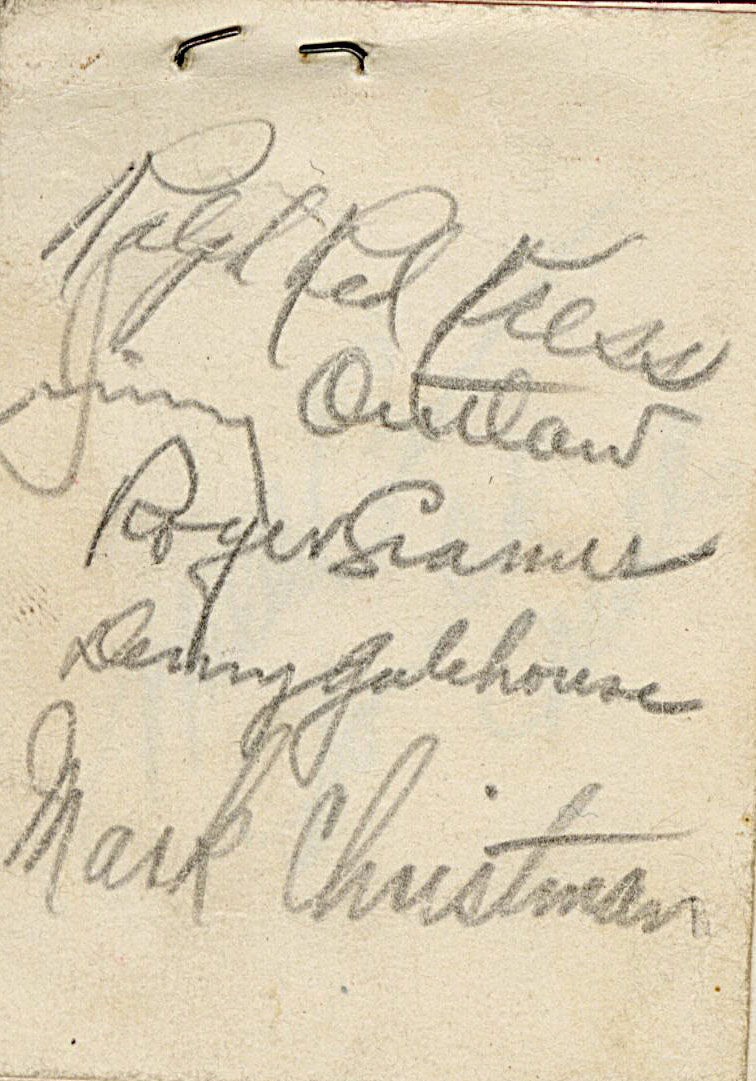 Ralph Red Kress
Jimmy Outlaw
Roger Cramer
Denny Galehouse
Mark Christman